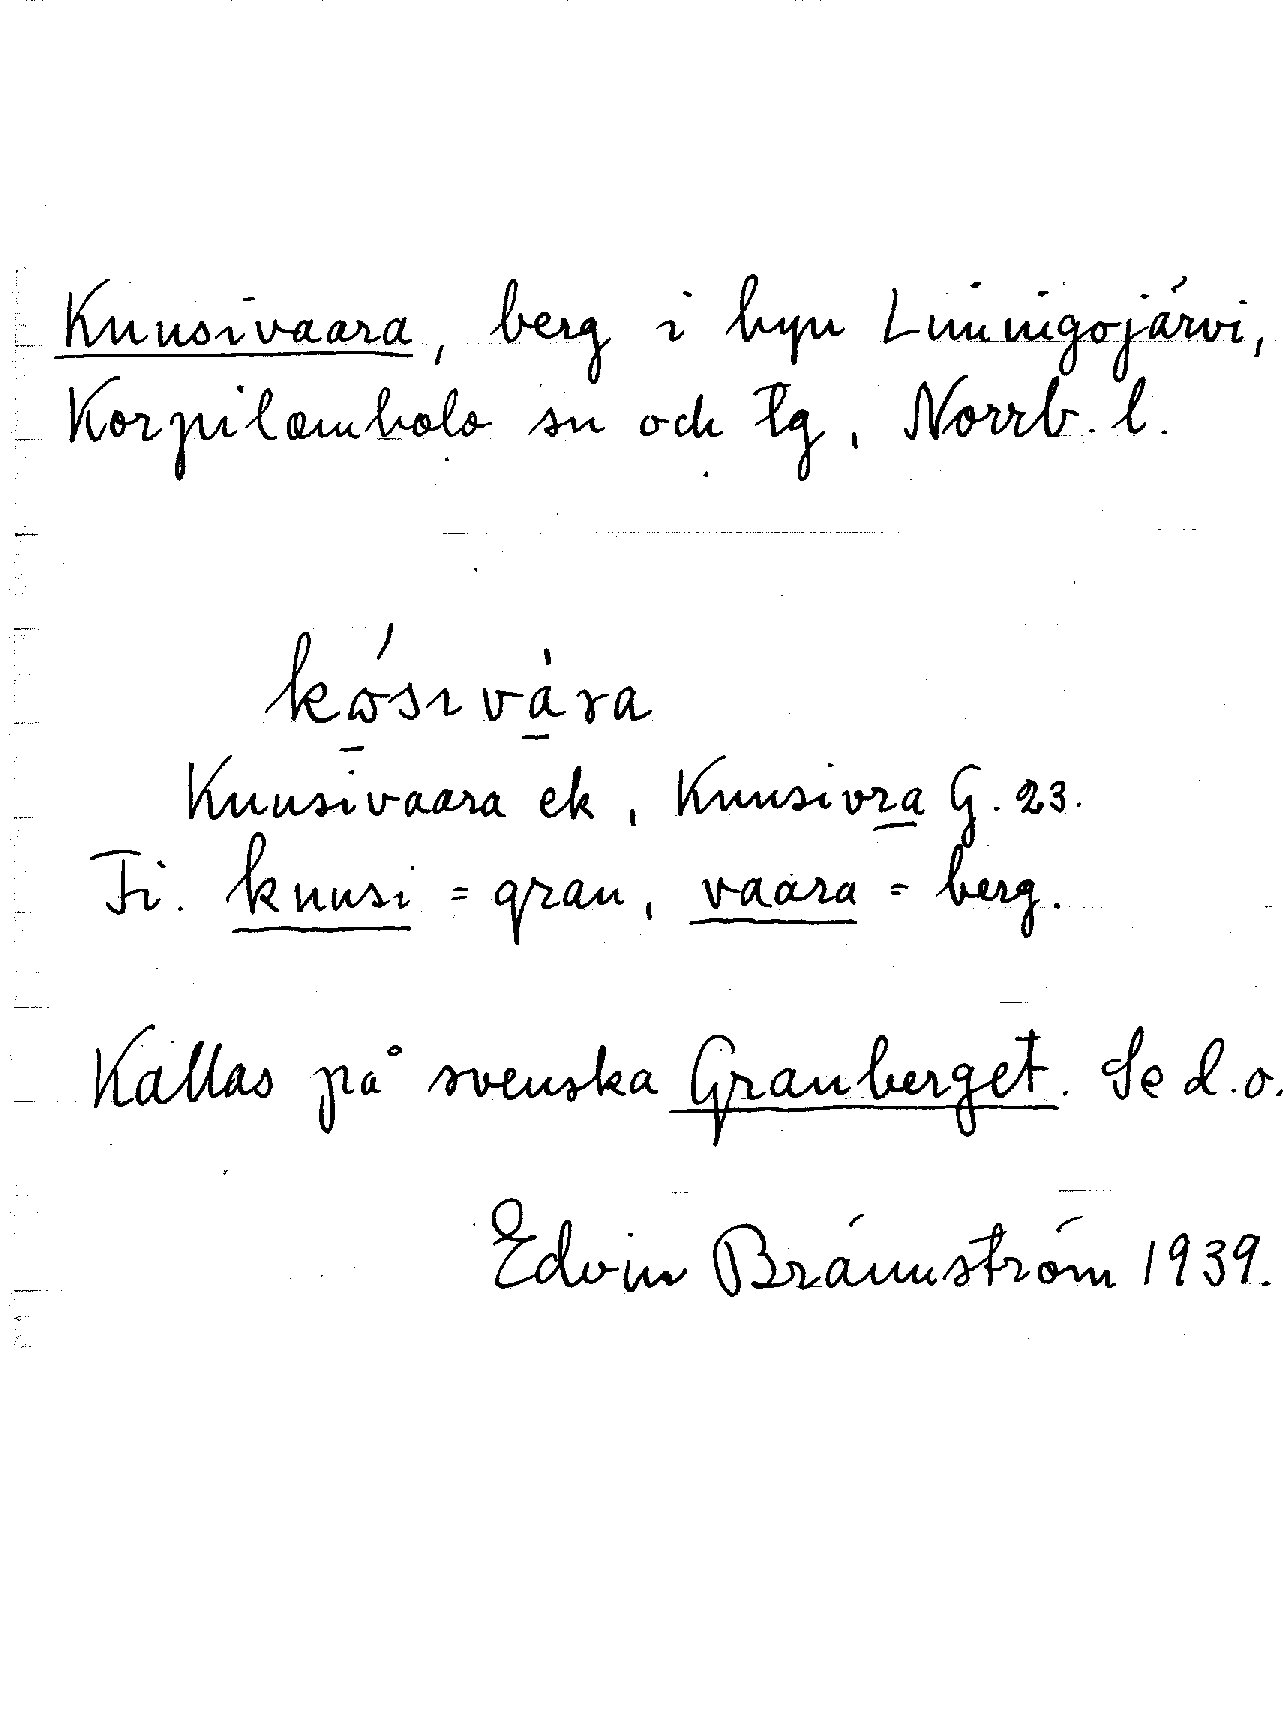 Kuusivaara, berg i byn Liminigojärvi,
Korpilombolo sn och tg, Norrb. l.
kώsıvàra
Kuusivaara ek, Kuusivra G. 23.
Fi. kuusi = gran, vaara = berg.
Kallas på svenska Granberget. Se d.o.
Edvin Brännström 1939.